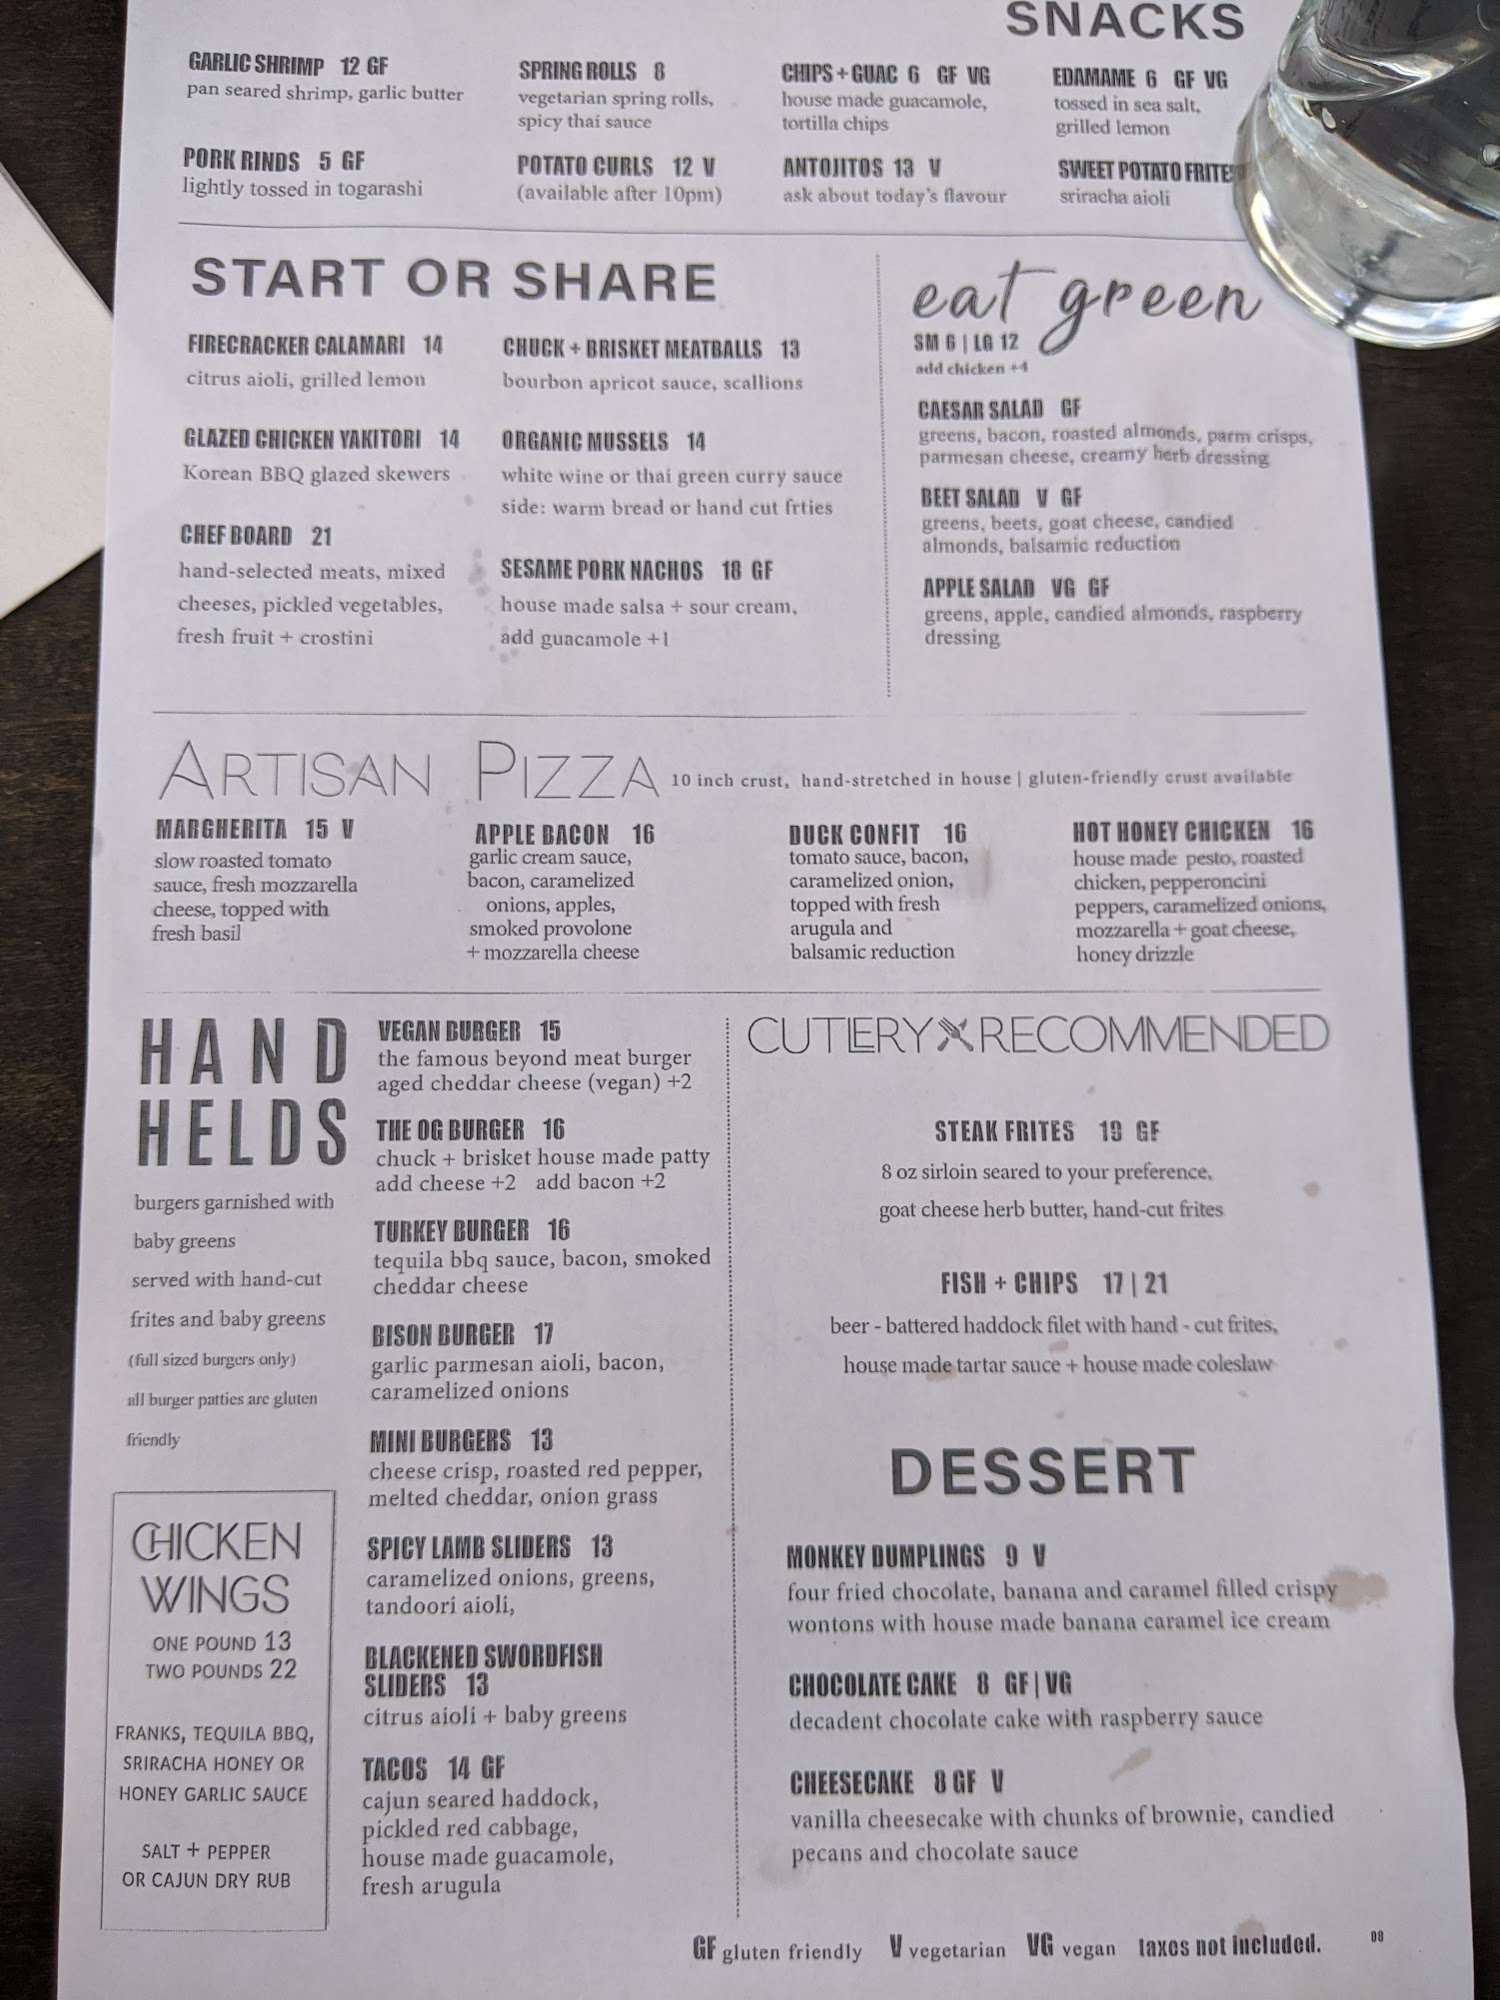 SNACKS
GARLIC SHRIMP 12 GF
pan seared shrimp, garlic butter
SPRING ROLLS 8
vegetarian spring rolls,
spicy thai sauce
CHIPS + GUAC 6 GF VG
house made guacamole,
tortilla chips
EDAMAME 6 GF VG
tossed in sea salt,
grilled lemon
PORK RINDS 5 GF
lightly tossed in togarashi
POTATO CURLS 12 V
(available after 10pm)
ANTOJITOS 13 V
ask about today's flavour
SWEET POTATO FRITES
sriracha aioli
START OR SHARE
FIRECRACKER CALAMARI 14
citrus aioli, grilled lemon
GLAZED CHICKEN YAKITORI 14
Korean BBQ glazed skewers
CHEF BOARD 21
hand-selected meats, mixed
cheeses, pickled vegetables,
fresh fruit + crostini
CHUCK + BRISKET MEATBALLS 13
bourbon apricot sauce, scallions
ORGANIC MUSSELS 14
white wine or thai green curry sauce
side: warm bread or hand cut frties
SESAME PORK NACHOS 18 GF
house made salsa + sour cream,
add guacamole +1
eat green
SM 6 | LG 12
add chicken +4
CAESAR SALAD GF
greens, bacon, roasted almonds, parm crisps,
parmesan cheese, creamy herb dressing
BEET SALAD V GF
greens, beets, goat cheese, candied
almonds, balsamic reduction
APPLE SALAD VG GF
greens, apple, candied almonds, raspberry
dressing
ARTISAN PIZZA 10 inch crust, hand-stretched in house | gluten-friendly crust available
MARGHERITA 15 V
slow roasted tomato
sauce, fresh mozzarella
cheese, topped with
fresh basil
APPLE BACON 16
garlic cream sauce,
bacon, caramelized
onions, apples,
smoked provolone
+ mozzarella cheese
DUCK CONFIT 16
tomato sauce, bacon,
caramelized onion,
topped with fresh
arugula and
balsamic reduction
HOT HONEY CHICKEN 16
house made pesto, roasted
chicken, pepperoncini
peppers, caramelized onions,
mozzarella + goat cheese,
honey drizzle
HAND
HELDS
burgers garnished with
baby greens
served with hand-cut
frites and baby greens
(full sized burgers only)
all burger patties are gluten
friendly
VEGAN BURGER 15
the famous beyond meat burger
aged cheddar cheese (vegan) +2
THE OG BURGER 16
chuck + brisket house made patty
add cheese +2 add bacon +2
TURKEY BURGER 16
tequila bbq sauce, bacon, smoked
cheddar cheese
BISON BURGER 17
garlic parmesan aioli, bacon,
caramelized onions
MINI BURGERS 13
cheese crisp, roasted red pepper,
melted cheddar, onion grass
SPICY LAMB SLIDERS 13
caramelized onions, greens,
tandoori aioli,
BLACKENED SWORDFISH
SLIDERS 13
citrus aioli + baby greens
TACOS 14 GF
cajun seared haddock,
pickled red cabbage,
house made guacamole,
fresh arugula
CHICKEN
WINGS
ONE POUND 13
TWO POUNDS 22
FRANKS, TEQUILA BBQ,
SRIRACHA HONEY OR
HONEY GARLIC SAUCE
SALT + PEPPER
OR CAJUN DRY RUB
CUTLERY RECOMMENDED
STEAK FRITES 19 GF
8 oz sirloin seared to your preference,
goat cheese herb butter, hand-cut frites
FISH + CHIPS 17 | 21
beer - battered haddock filet with hand - cut frites,
house made tartar sauce + house made coleslaw
DESSERT
MONKEY DUMPLINGS 9 V
four fried chocolate, banana and caramel filled crispy
wontons with house made banana caramel ice cream
CHOCOLATE CAKE 8 GF | VG
decadent chocolate cake with raspberry sauce
CHEESECAKE 8 GF V
vanilla cheesecake with chunks of brownie, candied
pecans and chocolate sauce
GF gluten friendly V vegetarian VG vegan taxes not included.
08